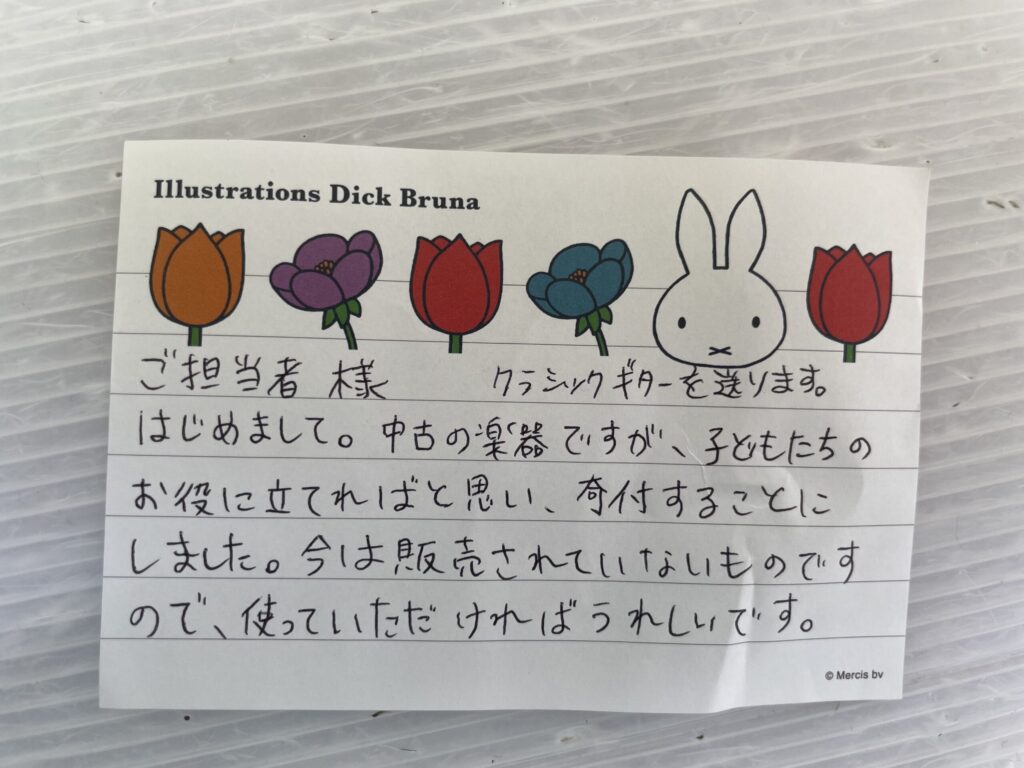 Illustrations Dick Bruna
ご担当者 様 クラシックギターを送ります。
はじめまして。中古の楽器ですが、子どもたちの
お役に立てればと思い、寄付することに
しました。今は販売されていないものです
ので、使っていただければうれしいです。
© Mercis bv